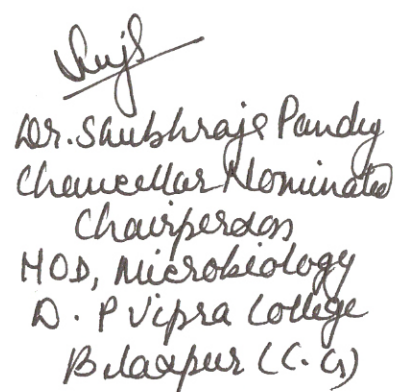 Dr. Shubhraje Pandey
Chancellar Nominated
Chairperson
HOD, Microbiology
D. P Vipra College
Bilaspur (C.G)